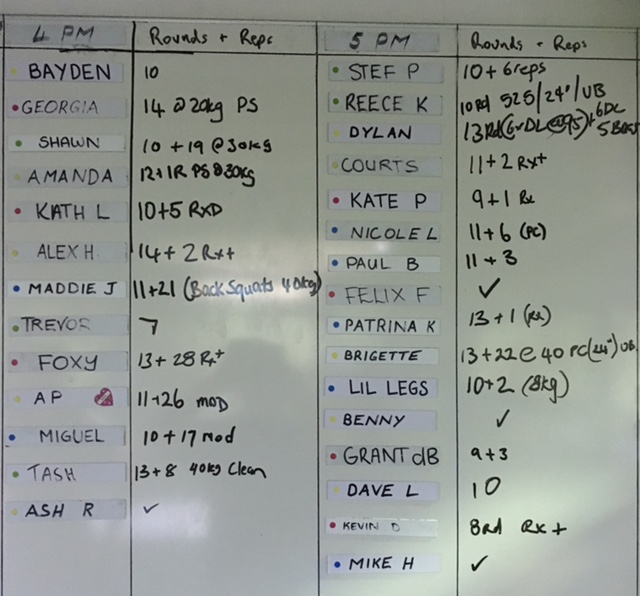 4 PM Rounds + Reps
BAYDEN 10
GEORGIA 14 @ 20kg PS
SHAWN 10 + 19 @ 30kg
AMANDA 12+1R PS @30kg
KATH L 10+5 RXD
ALEX H 14+2 Rx+
MADDIE J 11+21 (Back Squats 40kg)
TREVOR 7
FOXY 13+28 Rx+
AP 11+26 MOD
MIGUEL 10+17 Mod
TASH 13+8 40kg Clean
ASH R ✓
5 PM Rounds + Reps
STEF P 10+6reps
REECE K 10Rd 525/24"/UB
DYLAN 13Rd +6DL
COURTS 11+2 Rx+
KATE P 9+1 Rx
NICOLE L 11+6 (PC)
PAUL B 11+3
FELIX F ✓
PATRINA K 13+1 (Rx)
BRIGETTE 13+22@40 PC(24") UB
LIL LEGS 10+2 (8kg)
BENNY ✓
GRANT dB 9+3
DAVE L 10
KEVIN D 8rd Rx+
MIKE H ✓